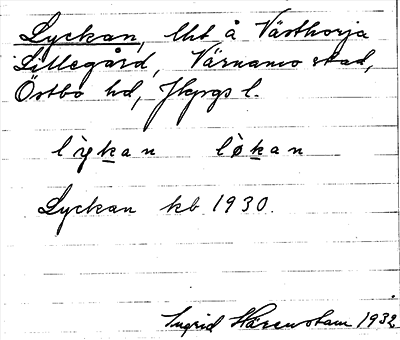 Lyckan, lht å Västhorja
Lillegård, Värnamo stad,
Östbo hd, Jkpgs l.
lỳkan løkan
Lyckan kb 1930.
Ingrid Härenstam 1932